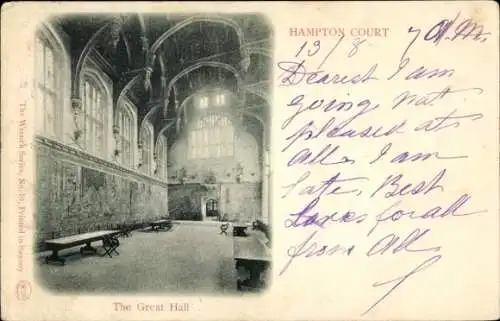 HAMPTON COURT
13/8
Dearest I am
going not
pleased at
All, I am
late, Best
Loves for all
from All.
The Great Hall
The Wrench Series, No. Printed in Saxony